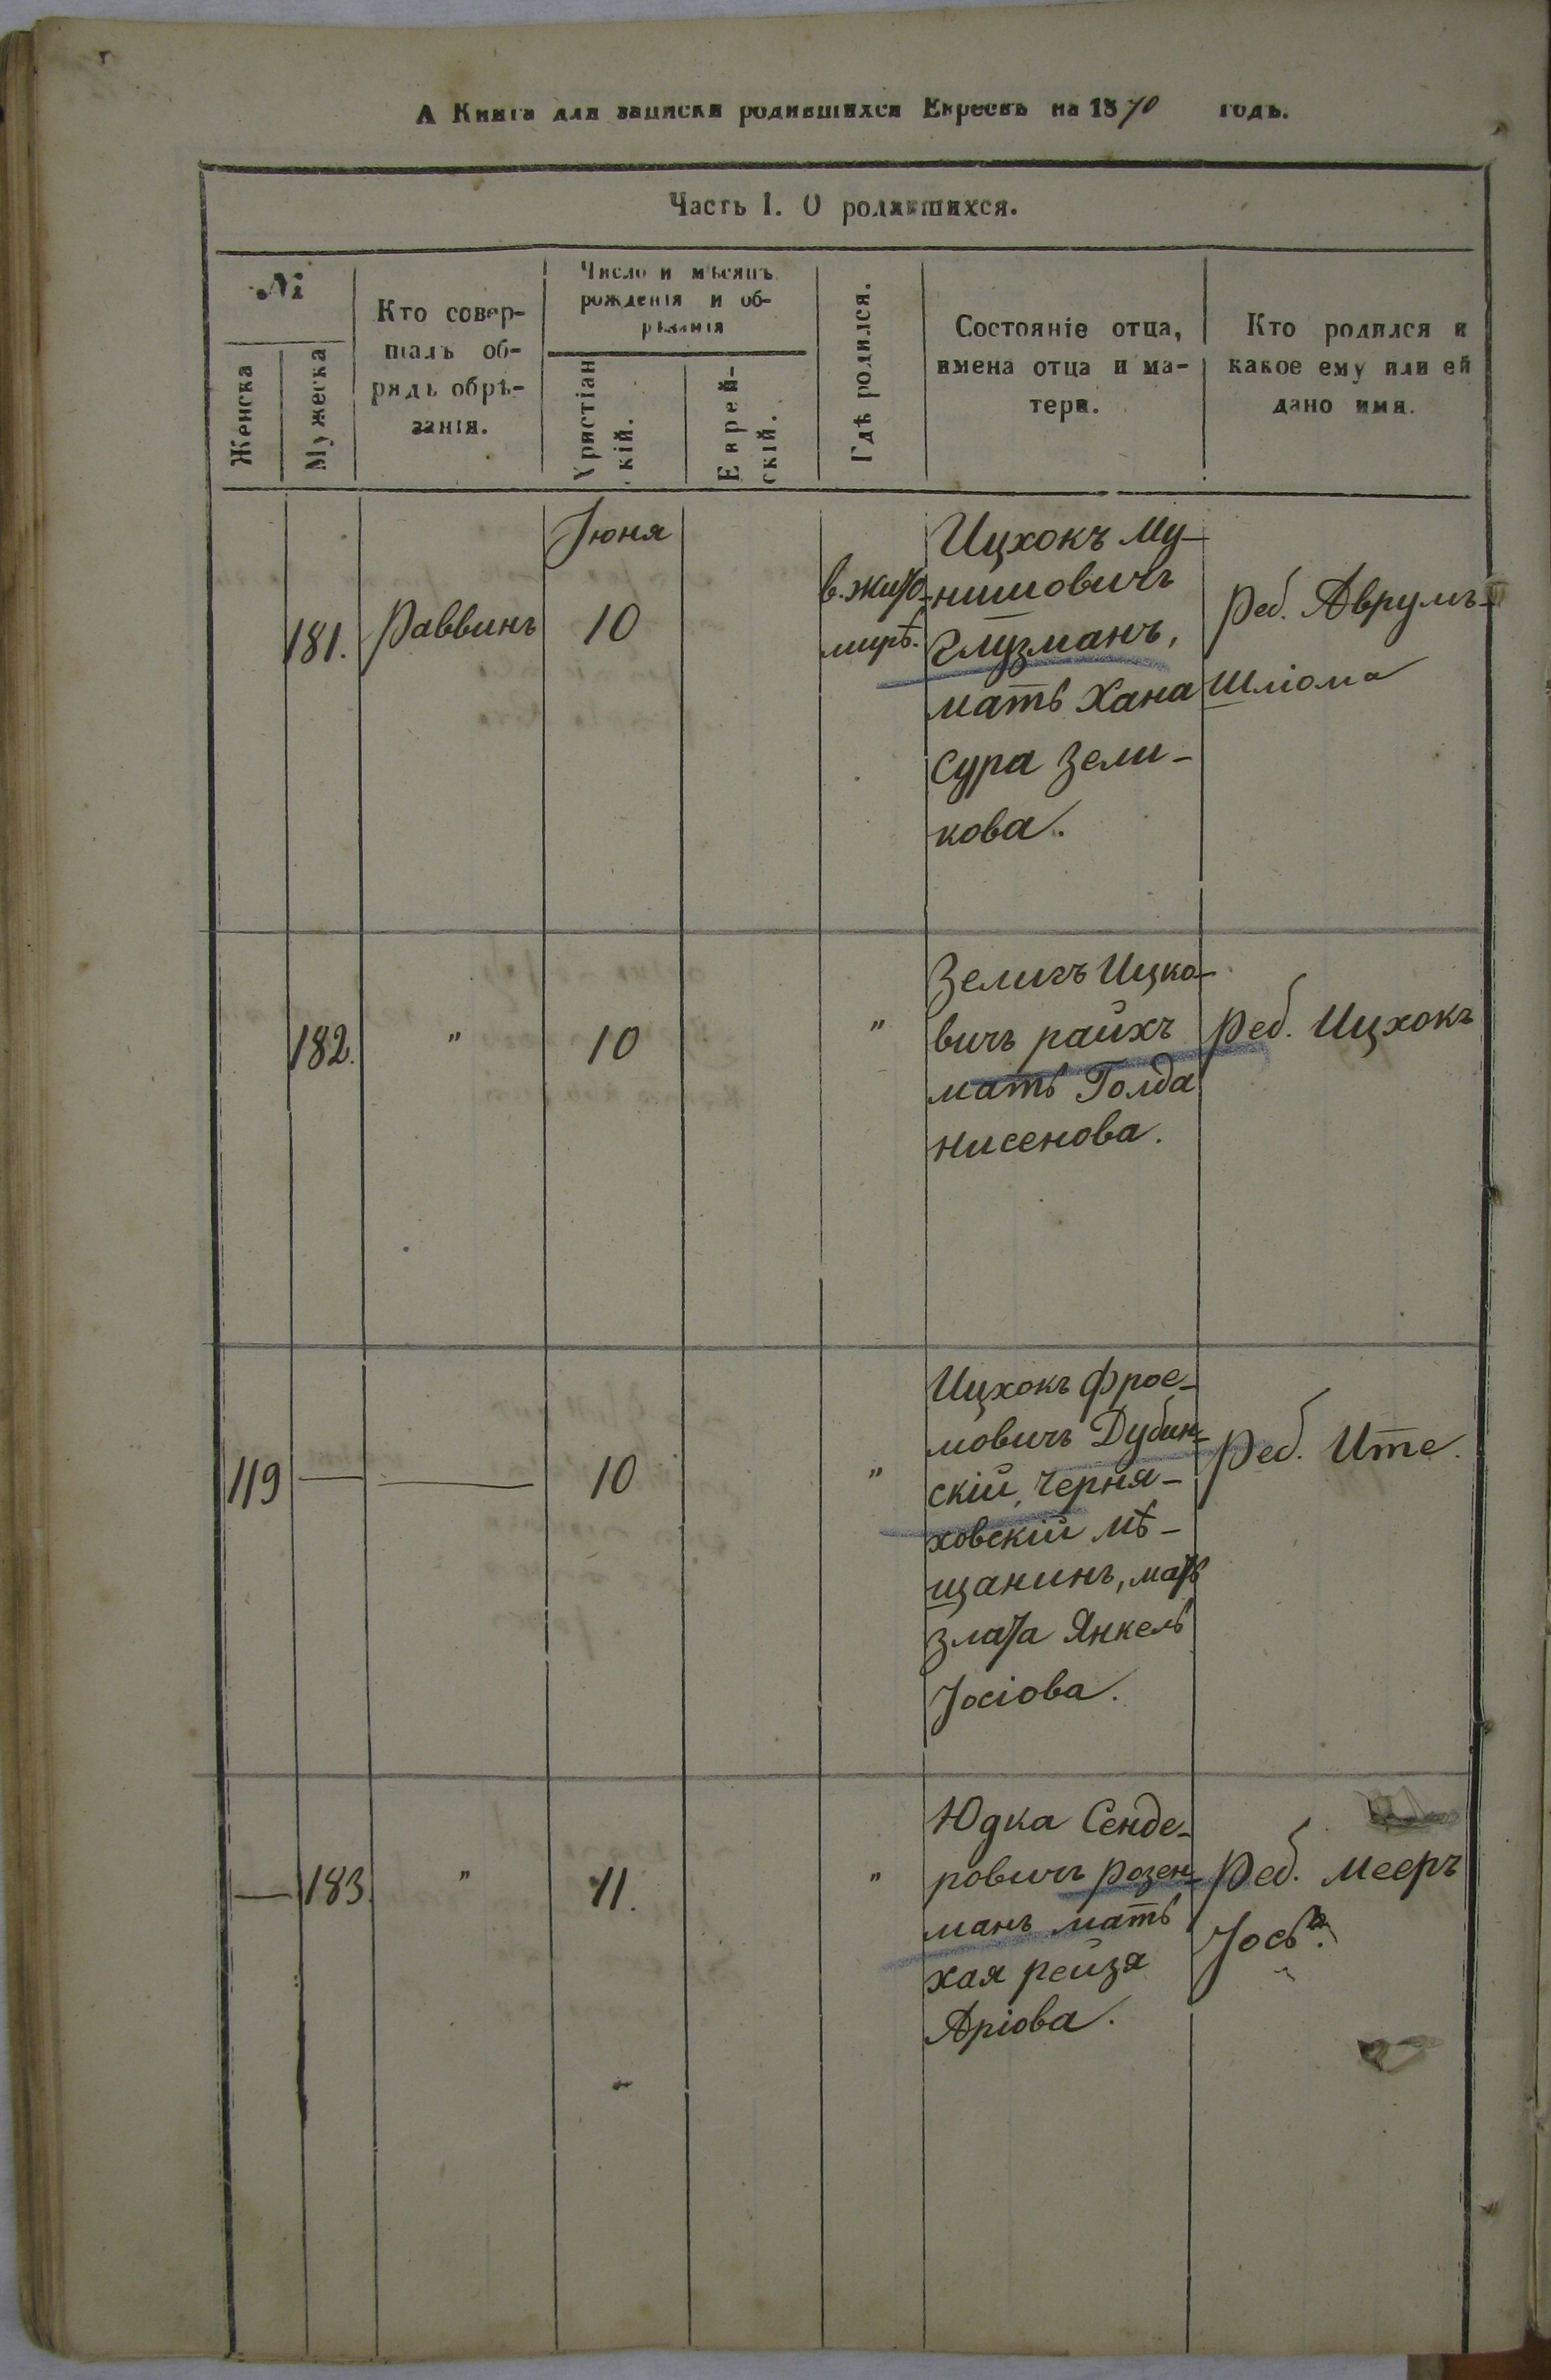 А Книга для записки родившихся Евреевъ на 1870 годъ.
Часть I. О родившихся.
№
Женска
Мужеска
Кто совер-
шалъ об-
рядъ обрѣ-
занія.
Число и мѣсяцъ
рожденія и об-
рѣзанія
Христіан
скій.
Еврей-
скій.
Гдѣ родился.
Состояніе отца,
имена отца и ма-
тери.
Кто родился и
какое ему или ей
дано имя.
181.
Раввинъ
Іюня
10
в. Жито-
мирѣ.
Ицхокъ Му-
нишовичъ
Глузманъ,
мать Хана
Сура Зели-
кова.
Реб. Аврумъ-
Шліома
182.
"
10
"
Зеличъ Ицко-
вичъ райхъ
мать Голда
нисенова.
Реб. Ицхокъ
119
—
—
10
"
Ицхокъ Фрое-
мовичъ Дубин-
скій, Черня-
ховскій мѣ-
щанинъ, мать
Злата Янкель
Іосіова.
Реб. Ите.
—
183.
"
11.
"
Юдка Сенде-
ровичъ Розен-
манъ мать
хая рейза
Аріова.
Реб. Мееръ
Іось.